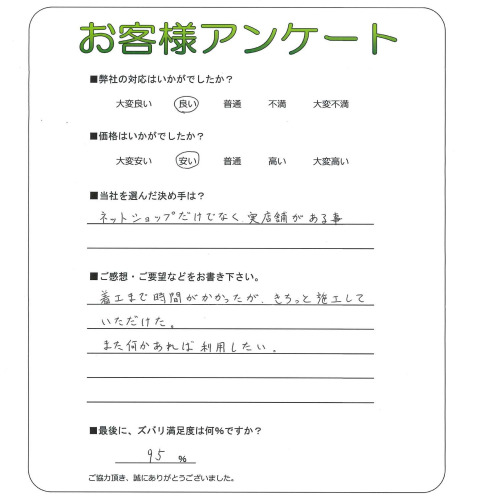 お客様アンケート
■弊社の対応はいかがでしたか？
大変良い 良い 普通 不満 大変不満
■価格はいかがでしたか？
大変安い 安い 普通 高い 大変高い
■当社を選んだ決め手は？
ネットショップだけでなく、実店舗がある事
■ご感想・ご要望などをお書き下さい。
着工まで時間がかかったが、きちっと施工して
いただけた。
また何かあれば利用したい。
■最後に、ズバリ満足度は何％ですか？
95 ％
ご協力頂き、誠にありがとうございました。